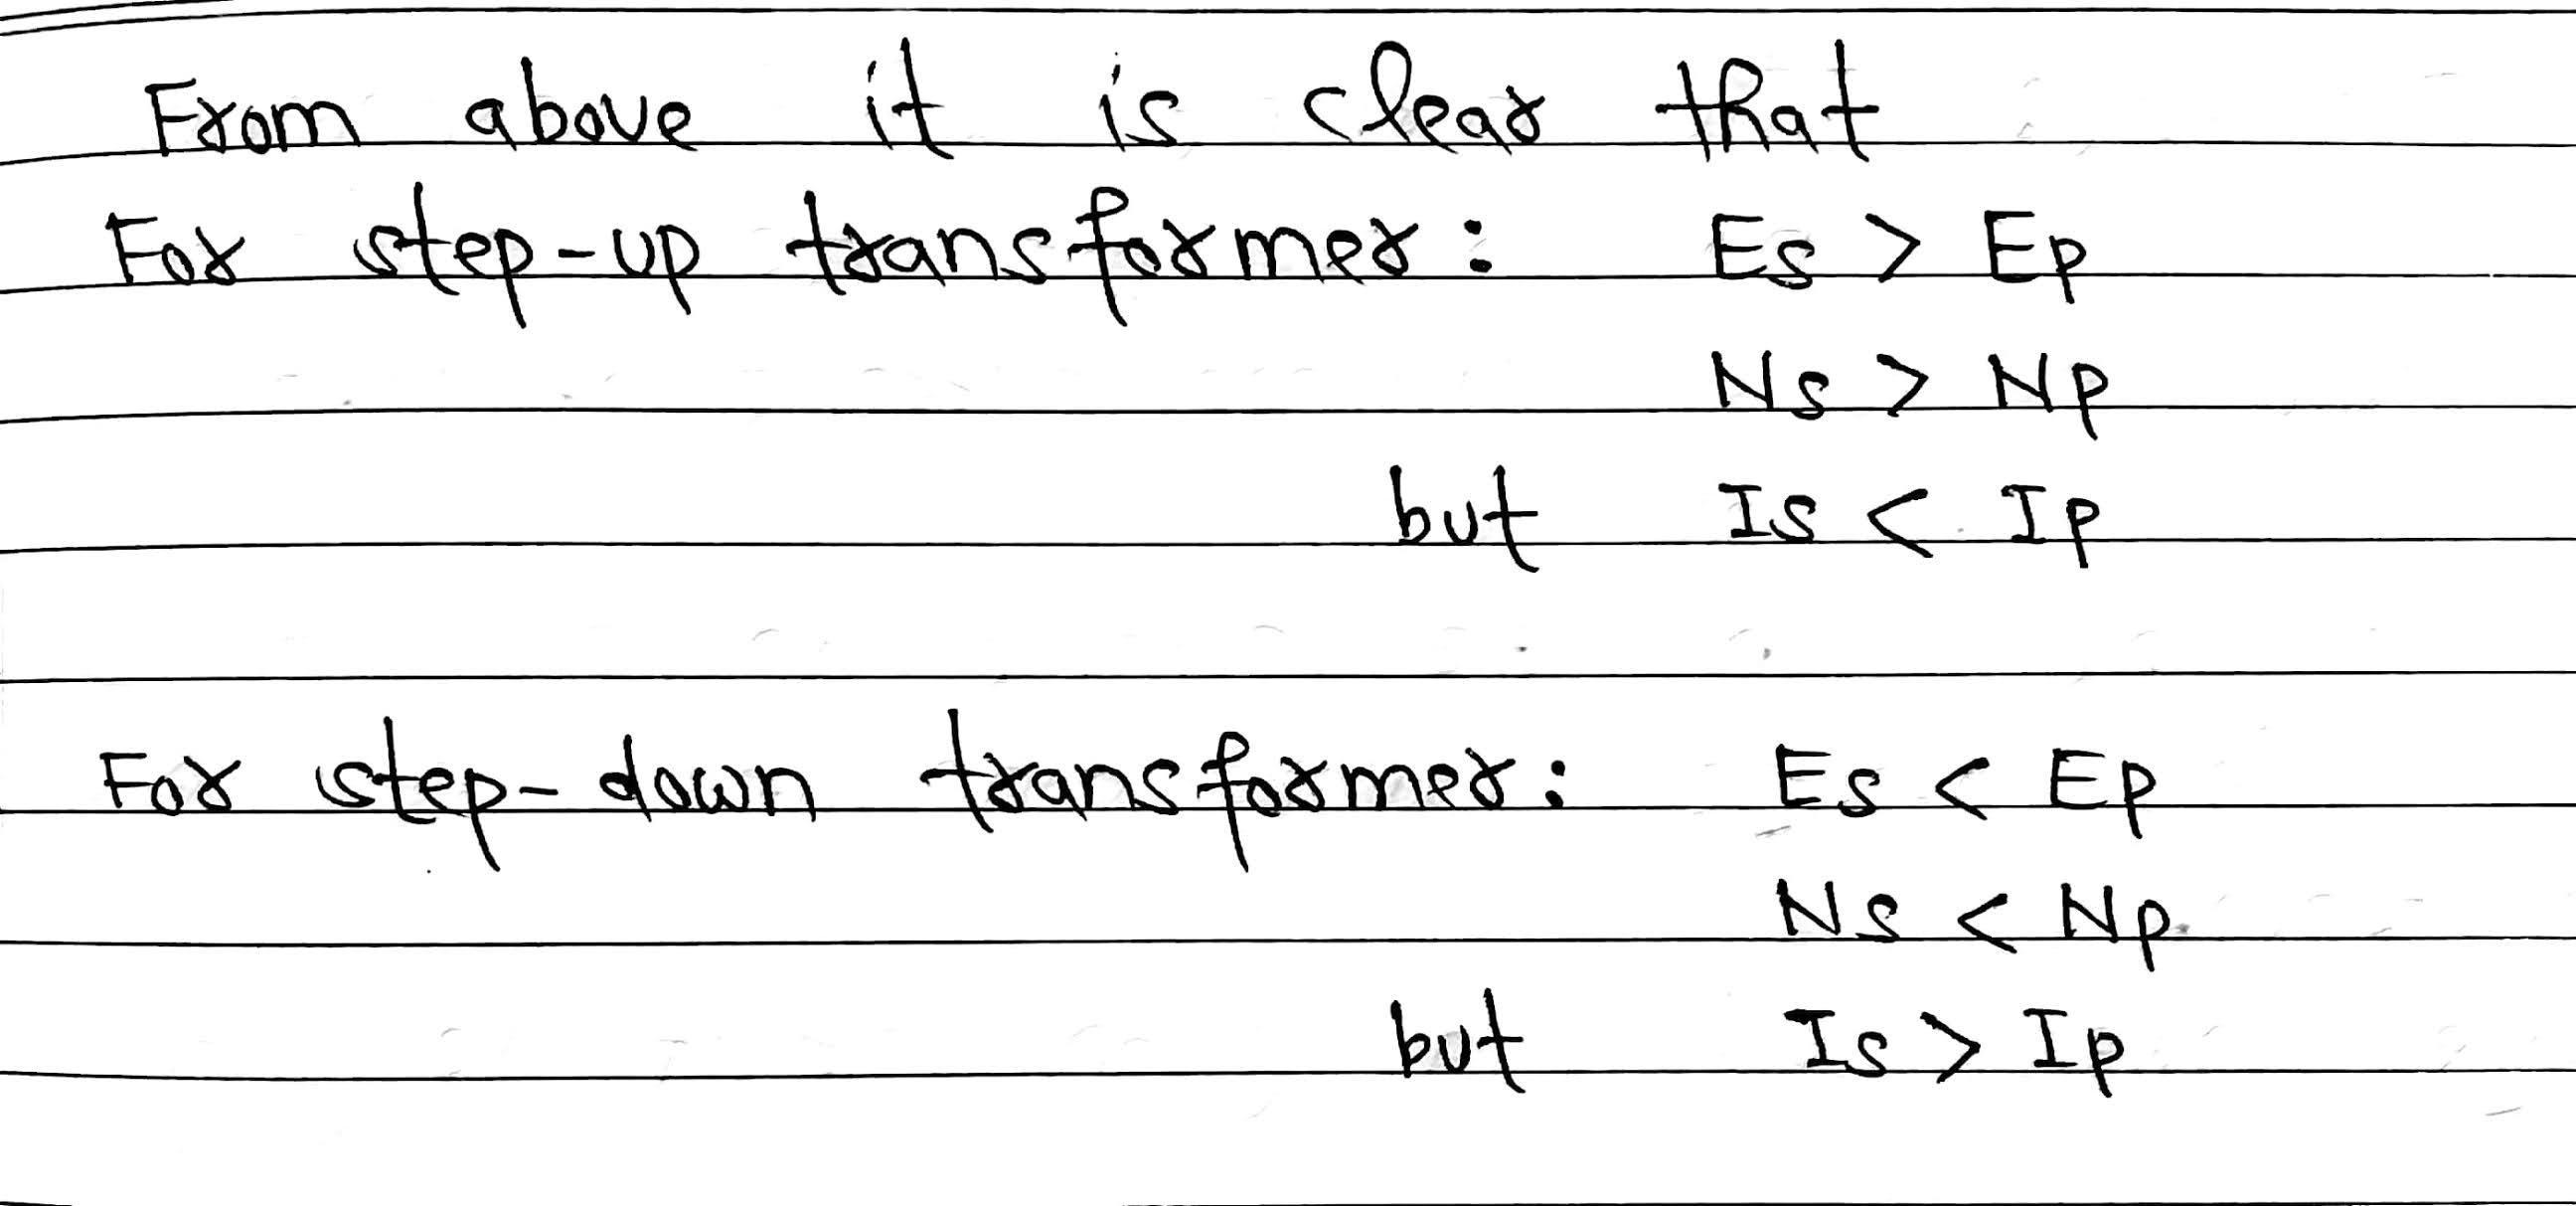 From above it is clear that
For step-up transformer: Es > Ep
Ns > Np
but Is < Ip
For step-down transformer: Es < Ep
Ns < Np
but Is > Ip